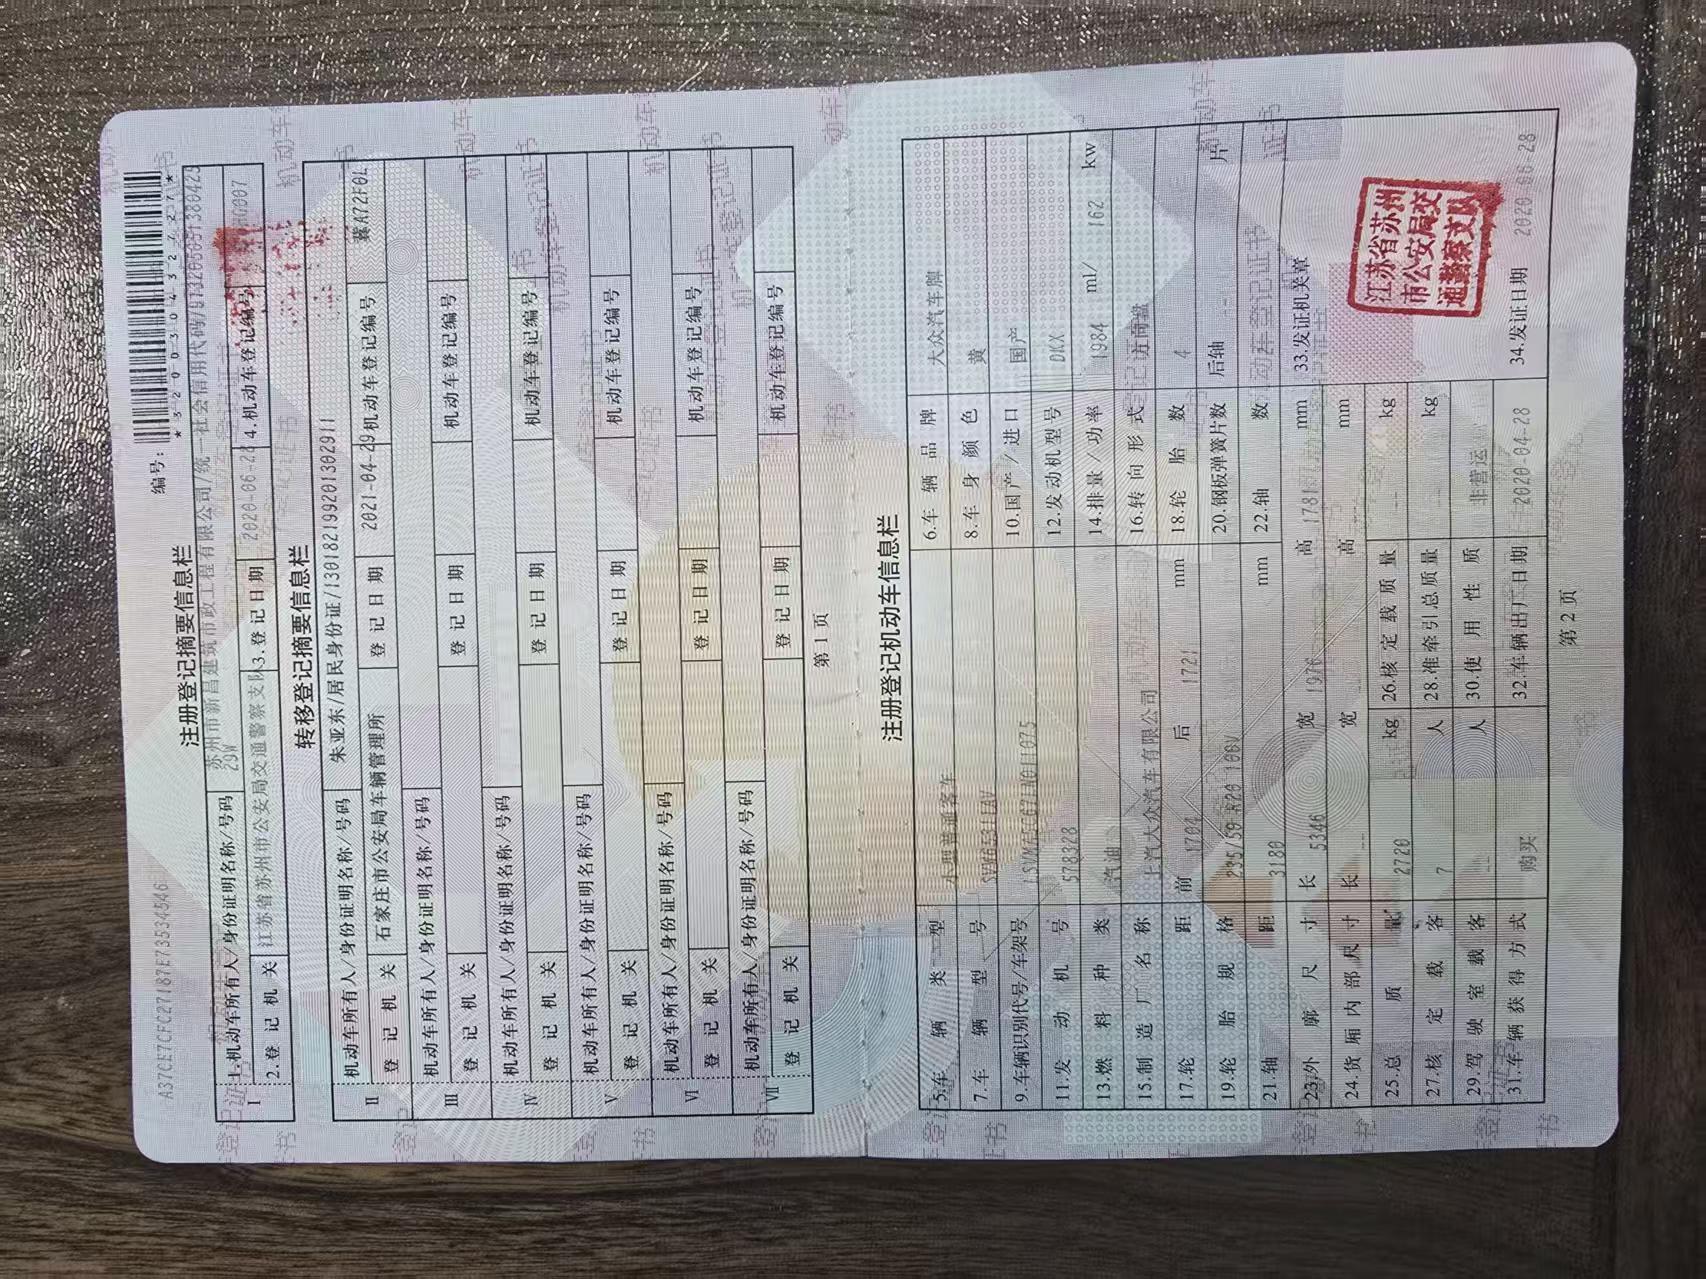 A37CE7CFC27187E7353454​6
编号:
*320030432727*
注册登记摘要信息栏
I
1.机动车所有人/身份证明名称/号码 苏州市新昌建筑市政工程有限公司/统一社会信用代码/
29W
2.登记机关 江苏省苏州市公安局交通警察支队 3.登记日期 2020-06-28 4.机动车登记编号
转移登记摘要信息栏
II 机动车所有人/身份证明名称/号码 朱亚东/居民身份证/130182199201302911
登记机关 石家庄市公安局车辆管理所 登记日期 2021-04-29 机动车登记编号 冀A72F0L
III 机动车所有人/身份证明名称/号码
登记机关 登记日期 机动车登记编号
IV 机动车所有人/身份证明名称/号码
登记机关 登记日期 机动车登记编号
V 机动车所有人/身份证明名称/号码
登记机关 登记日期 机动车登记编号
VI 机动车所有人/身份证明名称/号码
登记机关 登记日期 机动车登记编号
VII 机动车所有人/身份证明名称/号码
登记机关 登记日期 机动车登记编号
第1页
注册登记机动车信息栏
5.车辆类型 小型普通客车 6.车辆品牌 大众汽车牌
7.车辆型号 8.车身颜色 黄
9.车辆识别代号/车架号 10.国产/进口 国产
11.发动机号 578328 12.发动机型号 DKX
13.燃料种类 汽油 14.排量/功率 1984 ml/ 162 kw
15.制造厂名称 上汽大众汽车有限公司 16.转向形式 方向盘
17.轮距 前 1704 后 1721 mm 18.轮胎数 4
19.轮胎规格 235/50 R20 100V 20.钢板弹簧片数 后轴 片
21.轴距 3180 mm 22.轴数 2
23.外廓尺寸 长 5346 宽 1976 高 1781 mm 33.发证机关章
24.货厢内部尺寸 长 宽 高 mm
25.总质量 2720 kg 26.核定载质量 -- kg
27.核定载客 7 人 28.准牵引总质量 -- kg
29.驾驶室载客 -- 人 30.使用性质 非营运
31.车辆获得方式 购买 32.车辆出厂日期 2020-04-28 34.发证日期 2020-06-28
江苏省苏州
市公安局交
通警察支队
第2页